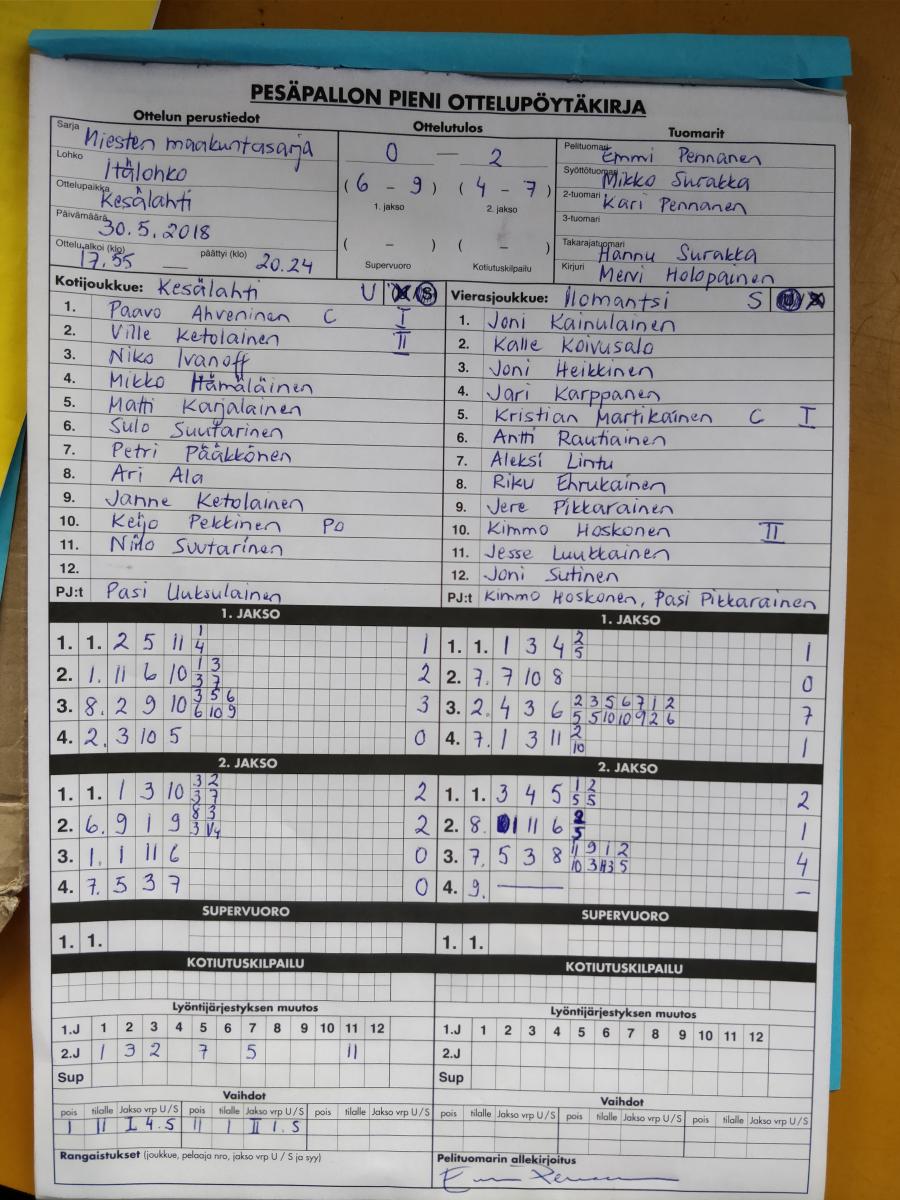 PESÄPALLON PIENI OTTELUPÖYTÄKIRJA
Ottelun perustiedot
Sarja Miesten maakuntasarja
Lohko Itälohko
Ottelupaikka Kesälahti
Päivämäärä 30.5.2018
Ottelu alkoi (klo) 17.55 — päättyi (klo) 20.24
Ottelutulos
0 — 2
(6 - 9) (4 - 7)
1. jakso 2. jakso
( - ) ( - )
Supervuoro Kotiutuskilpailu
Tuomarit
Pelituomari Emmi Pennanen
Syöttötuomari Mikko Surakka
2-tuomari Kari Pennanen
3-tuomari
Takarajatuomari Hannu Surakka
Kirjuri Mervi Holopainen
Kotijoukkue: Kesälahti U S
1. Paavo Ahveninen C I
2. Ville Ketolainen II
3. Niko Ivanoff
4. Mikko Hämäläinen
5. Matti Karjalainen
6. Sulo Suutarinen
7. Petri Pääkkönen
8. Ari Ala
9. Janne Ketolainen
10. Keijo Pekkinen PO
11. Niilo Suutarinen
12.
PJ:t Pasi Uuksulainen
Vierasjoukkue: Ilomantsi S
1. Joni Kainulainen
2. Kalle Koivusalo
3. Joni Heikkinen
4. Jari Karppanen
5. Kristian Martikainen C I
6. Antti Rautiainen
7. Aleksi Lintu
8. Riku Ehrukainen
9. Jere Pikkarainen
10. Kimmo Hoskonen II
11. Jesse Luukkainen
12. Joni Sutinen
PJ:t Kimmo Hoskonen, Pasi Pikkarainen
1. JAKSO
1. 1. 2 5 11 1/4 1
2. 1. 11 6 10 1/3 3/7 2
3. 8. 2 9 10 3/6 5/10 6/9 3
4. 2. 3 10 5 0
1. JAKSO
1. 1. 1 3 4 2/5 1
2. 7. 7 10 8 0
3. 2. 4 3 6 2/5 3/5 5/10 6/10 7/9 1/2 2/6 7
4. 7. 1 3 11 2/10 1
2. JAKSO
1. 1. 1 3 10 3/3 2/7 2
2. 6. 9 1 9 8/3 2
3. 1. 1 11 6 0
4. 7. 5 3 7 0
2. JAKSO
1. 1. 3 4 5 1/5 2/5 2
2. 8. 11 6 2/5 1
3. 7. 5 3 8 11/10 9/3 2/5 4
4. 9. — –
SUPERVUORO
1. 1.
SUPERVUORO
1. 1.
KOTIUTUSKILPAILU
KOTIUTUSKILPAILU
Lyöntijärjestyksen muutos
1.J 1 2 3 4 5 6 7 8 9 10 11 12
2.J 1 3 2 7 5 11
Sup
Lyöntijärjestyksen muutos
1.J 1 2 3 4 5 6 7 8 9 10 11 12
2.J
Sup
Vaihdot
pois tilalle Jakso vrp U/S pois tilalle Jakso vrp U/S pois tilalle Jakso vrp U/S
1 11 I 4. S 11 1 II 1. S
Vaihdot
pois tilalle Jakso vrp U/S pois tilalle Jakso vrp U/S pois tilalle Jakso vrp U/S
Rangaistukset (joukkue, pelaaja nro, jakso vrp U / S ja syy)
Pelituomarin allekirjoitus